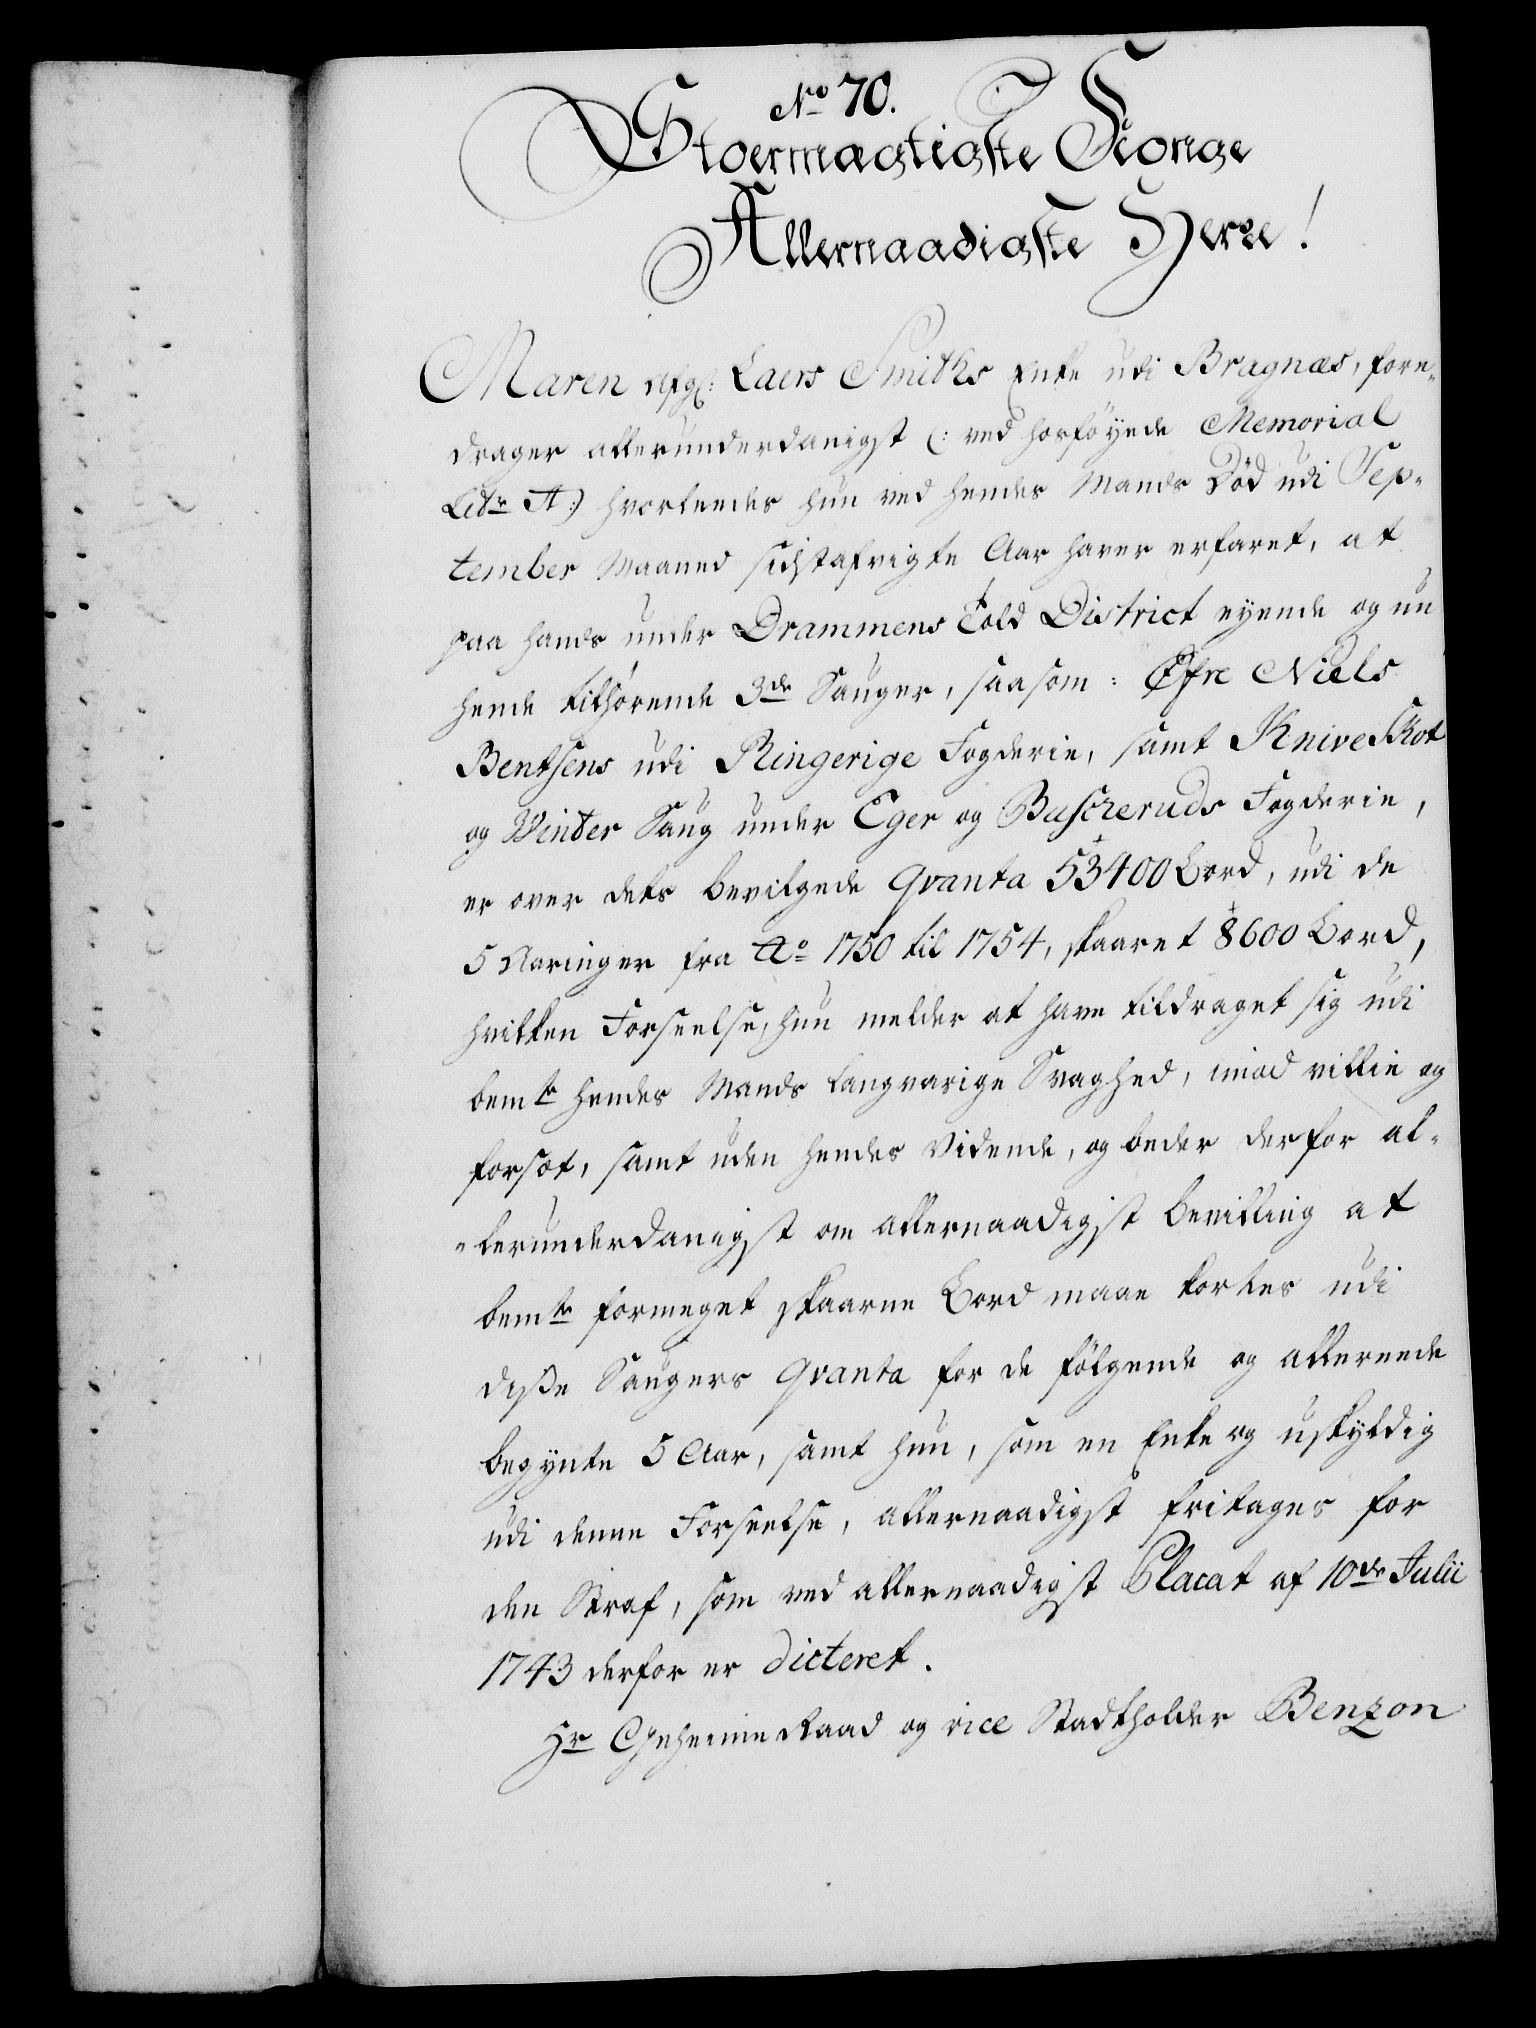 No 70.
Stoermægtigste Konge
Allernaadigste Herre!
Maren afg: Laers Smiths Enke udi Bragnæs, fore-
drager allerunderdanigst (: ved hosföyede Memorial
Litr A:) hvorledes hun ved hendes Mands Död udi Sep-
tember Maaned sidstafvigte Aar haver erfaret, at
paa hands under Drammens Told District eyende og nu
hende tilhörende 3de Sauger, saasom: Öfre Niels
Bentsens udi Ringerige Fogderie, samt Knive Skot
og Vinter Saug under Eger og Buscheruds Fogderie,
er over dets bevilgede qvanta 53400 Bord, udi de
5 Aaringer fra Ao 1750 til 1754, skaaret 8600 Bord,
hvilken Forseelse, hun melder at have tildraget sig udi
bemte hendes Mands langvarige Svaghed, imod villie og
forsæt, samt uden hendes Vidende, og beder derfor al-
-lerunderdanigst om allernaadigst bevilling at
bemte formeget skaarne Bord maae kortes udi
disse Saugers qvanta for de fölgende og allereede
begynte 5 Aar, samt hun, som en Enke og uskyldig
udi denne Forseelse, allernaadigst fritages for
den Straf, som ved allernaadigst Placat af 10de Julii
1743 derfor er dicteret.
Hr Geheime Raad og vice Stadtholder Benzon